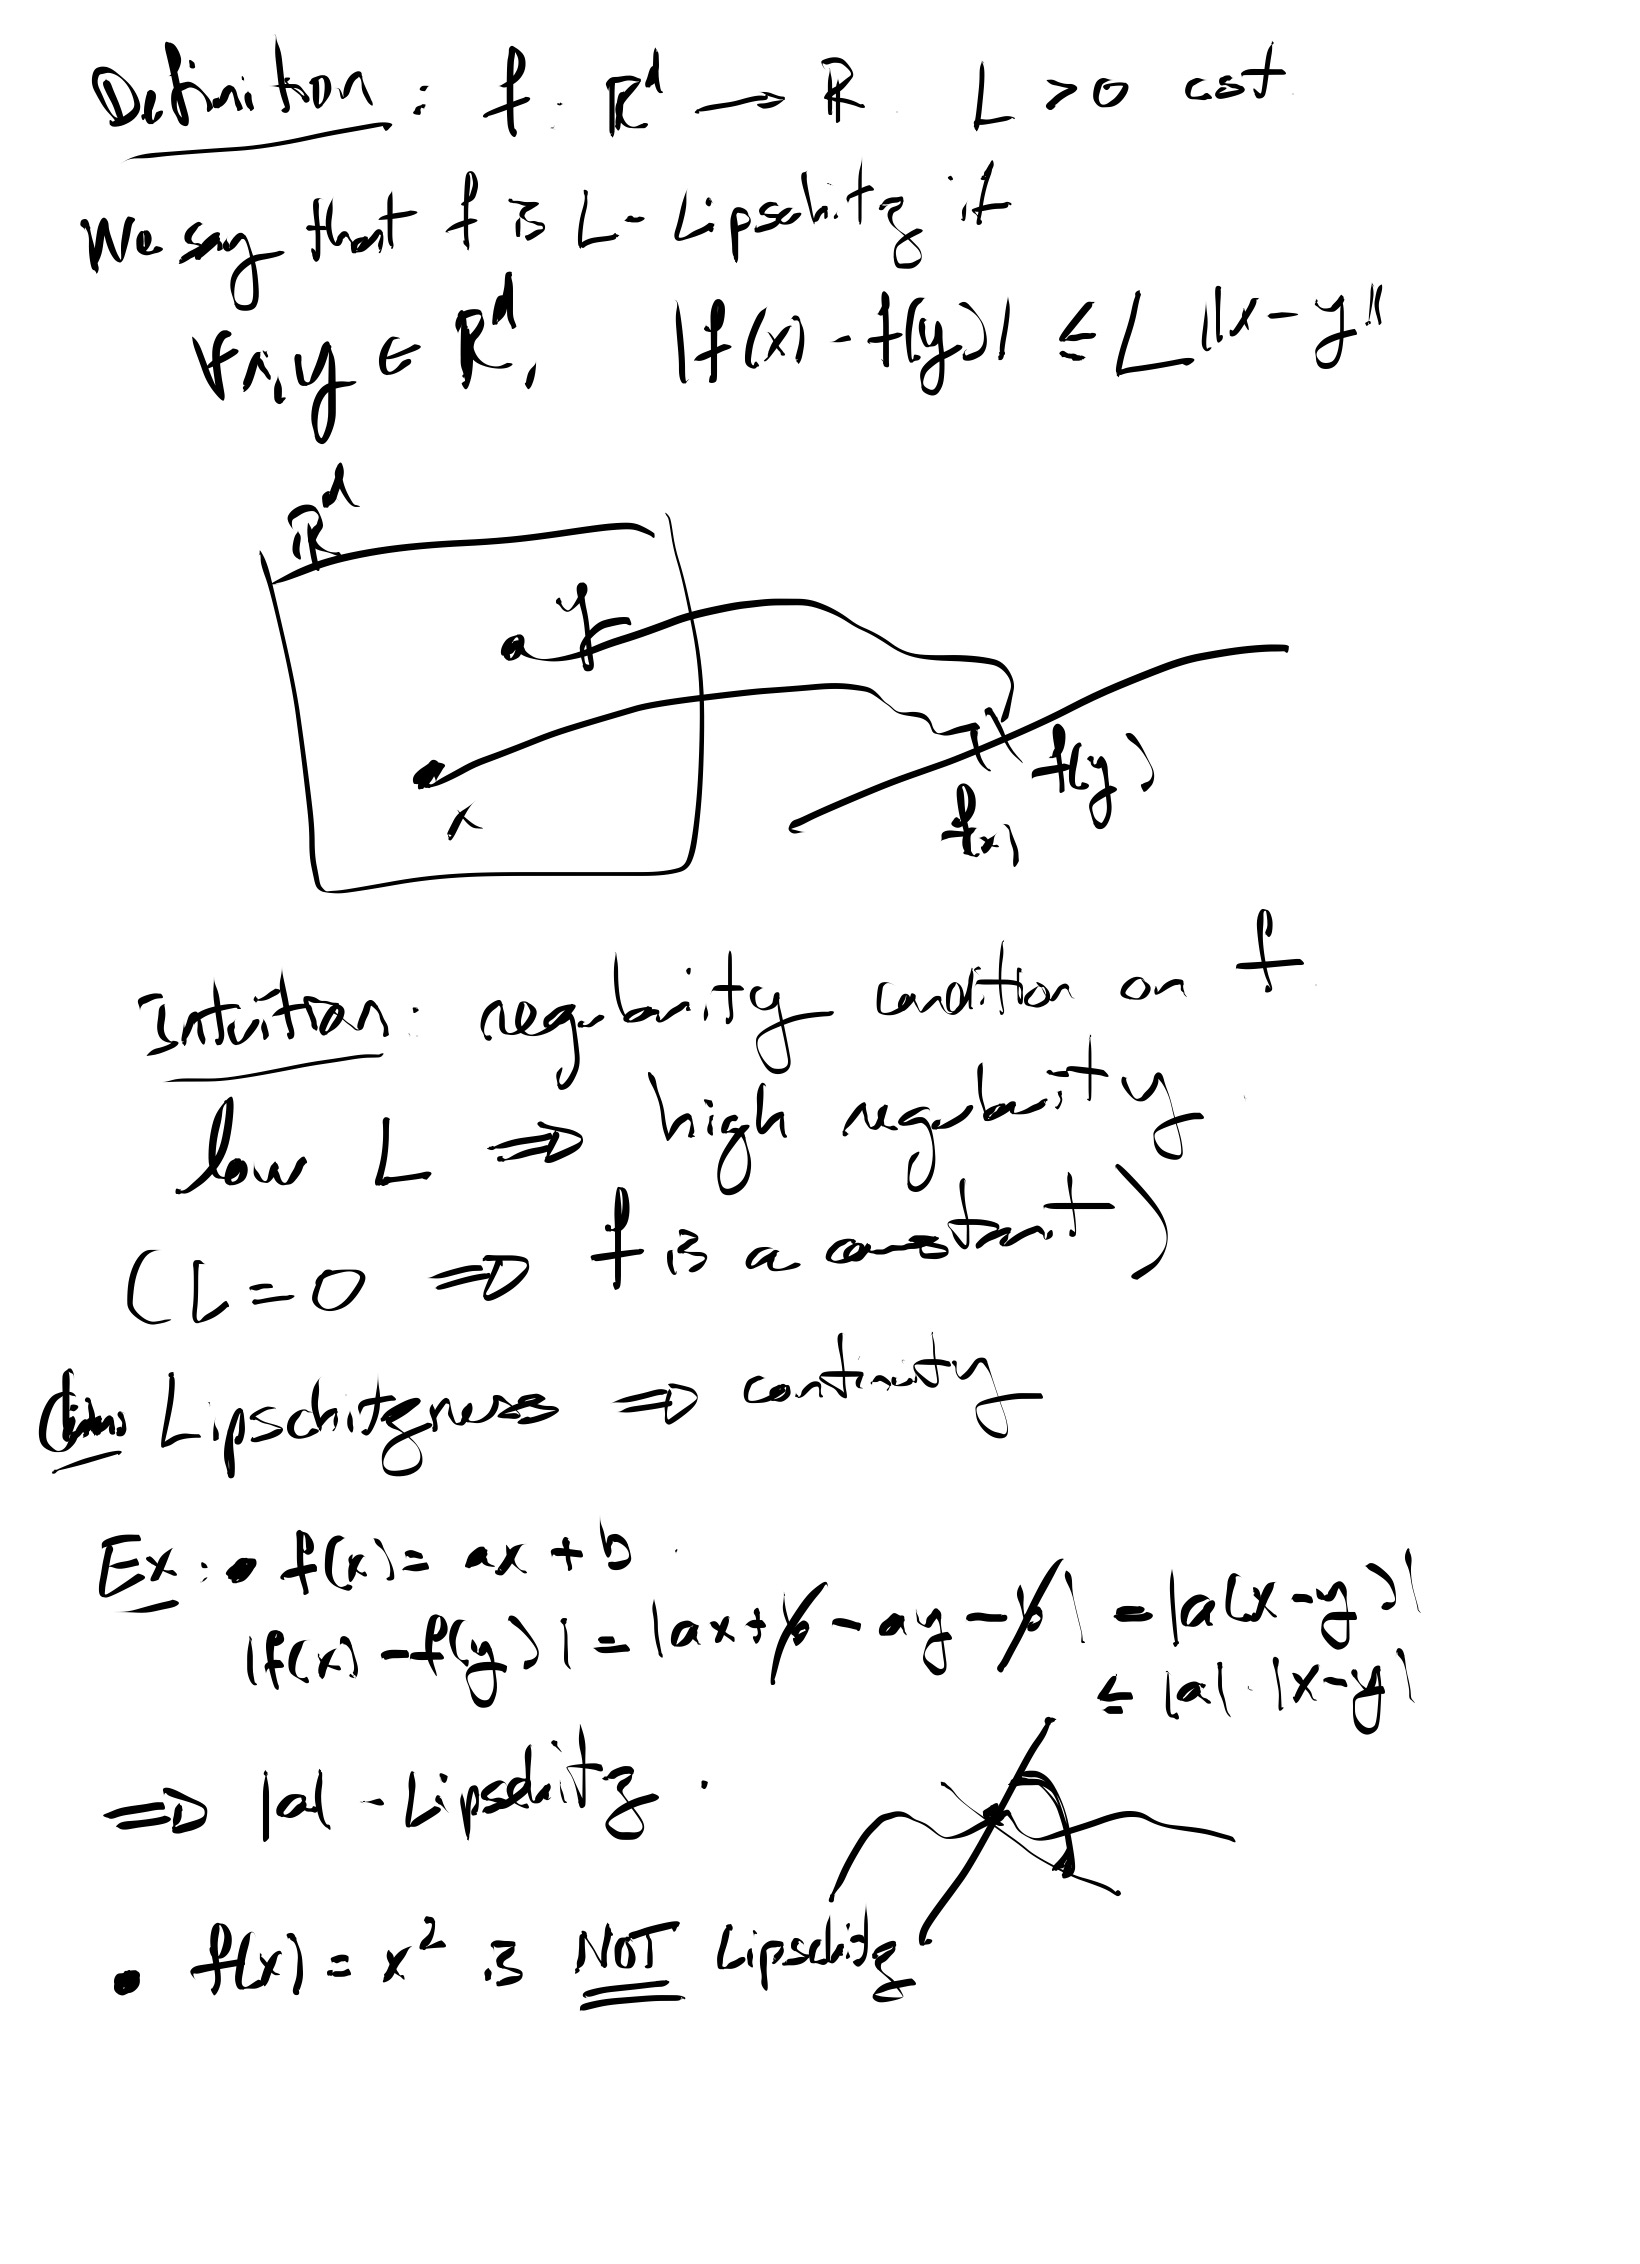 Definition: f: ℝ^d → ℝ. L > 0 cst.
We say that f is L-Lipschitz if
∀x,y ∈ ℝ^d, |f(x) - f(y)| ≤ L ||x - y||
ℝ^d
y
x
f(y)
f(x)
Intuition: regularity condition on f.
low L ⇒ high regularity.
(L = 0 ⇒ f is a constant)
Claim Lipschitzness ⇒ continuity
Ex: • f(x) = ax + b.
|f(x) - f(y)| = |ax + b - ay - b| = |a(x - y)|
≤ |a| · |x - y|
⇒ |a| - Lipschitz.
• f(x) = x² is NOT Lipschitz